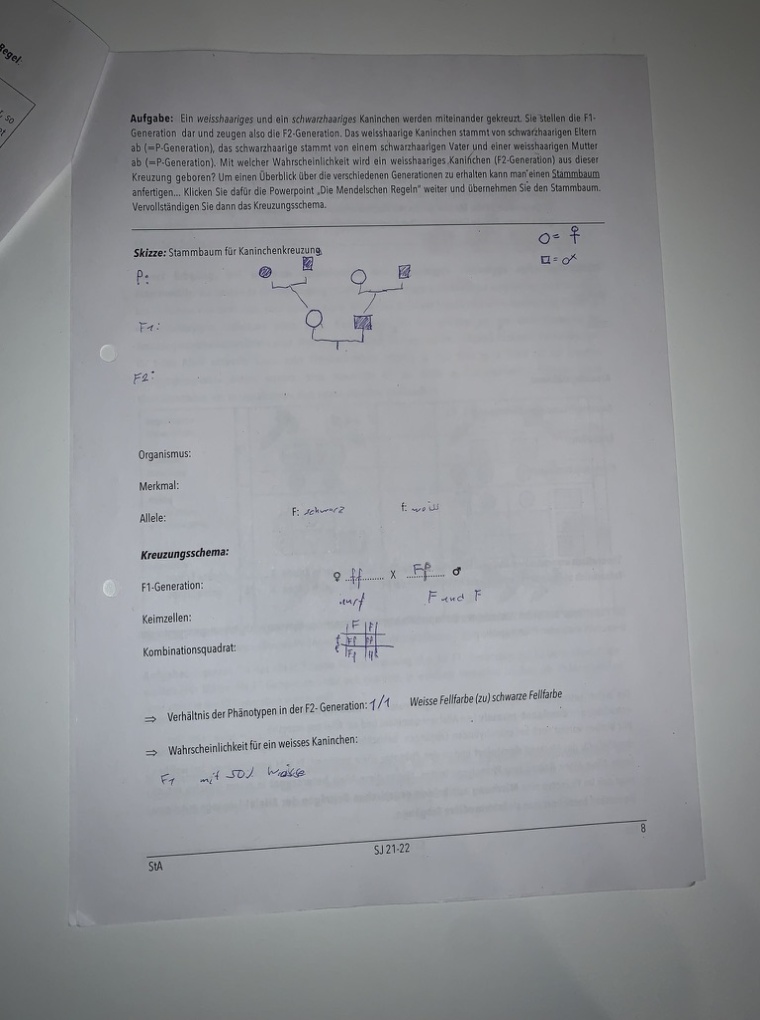 Regel:
, so
Aufgabe: Ein weisshaariges und ein schwarzhaariges Kaninchen werden miteinander gekreuzt. Sie stellen die F1-
Generation dar und zeugen also die F2-Generation. Das weisshaarige Kaninchen stammt von schwarzhaarigen Eltern
ab (=P-Generation), das schwarzhaarige stammt von einem schwarzhaarigen Vater und einer weisshaarigen Mutter
ab (=P-Generation). Mit welcher Wahrscheinlichkeit wird ein weisshaariges Kaninchen (F2-Generation) aus dieser
Kreuzung geboren? Um einen Überblick über die verschiedenen Generationen zu erhalten kann man einen Stammbaum
anfertigen... Klicken Sie dafür die Powerpoint „Die Mendelschen Regeln" weiter und übernehmen Sie den Stammbaum.
Vervollständigen Sie dann das Kreuzungsschema.
Skizze: Stammbaum für Kaninchenkreuzung
○ = ♀
□ = ♂
P:
F1:
F2:
Organismus:
Merkmal:
Allele: F: schwarz f: weiss
Kreuzungsschema:
F1-Generation: ♀ ff x Ff ♂
Keimzellen: nur f F und F
Kombinationsquadrat:
F f
Ff ff
Ff ff
⇒ Verhältnis der Phänotypen in der F2- Generation: 1/1 Weisse Fellfarbe (zu) schwarze Fellfarbe
⇒ Wahrscheinlichkeit für ein weisses Kaninchen:
F1 mit 50% Weisse
8
StA SJ 21-22